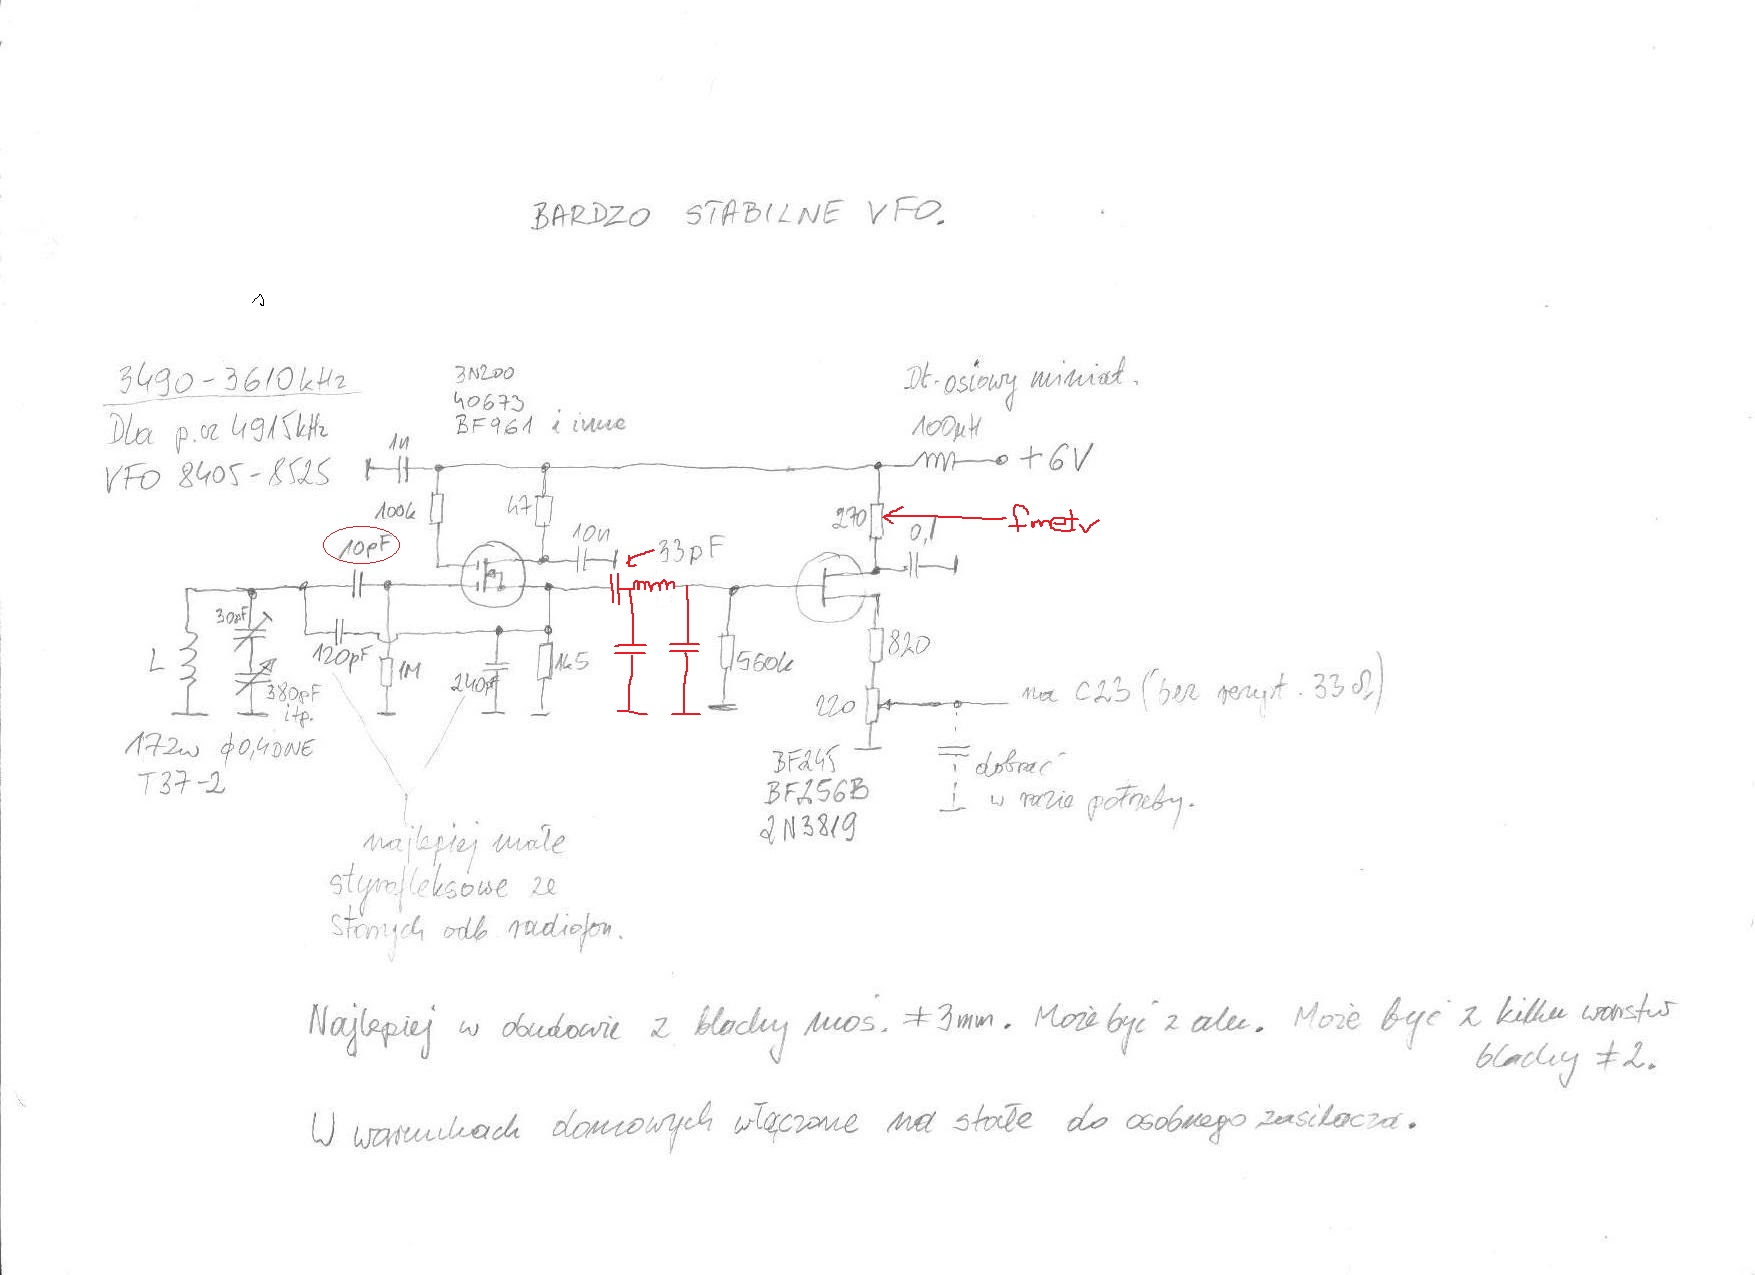 BARDZO STABILNE VFO.
3490-3610kHz
Dla p.cz 4915kHz
VFO 8405-8525
3N200
40673
BF961 i inne
Dł. osiowy miniat.
100µH
+6V
1n
100k
47
270
fmetr
0,1
10n
33pF
10pF
30pF
L
120pF
1M
240pF
1k5
560k
820
220
na C23 (bez rezyst. 33Ω)
380pF
itp.
172w ϕ0,4DNE
T37-2
BF245
BF256B
2N3819
dobrać
w razie potrzeby.
najlepiej małe
styrofleksowe ze
starych odb radiofon.
Najlepiej w obudowie z blachy mos. ≠3mm. Może być z alu. Może być z kilku warstw
blachy ≠2.
W warunkach domowych włączone na stałe do osobnego zasilacza.